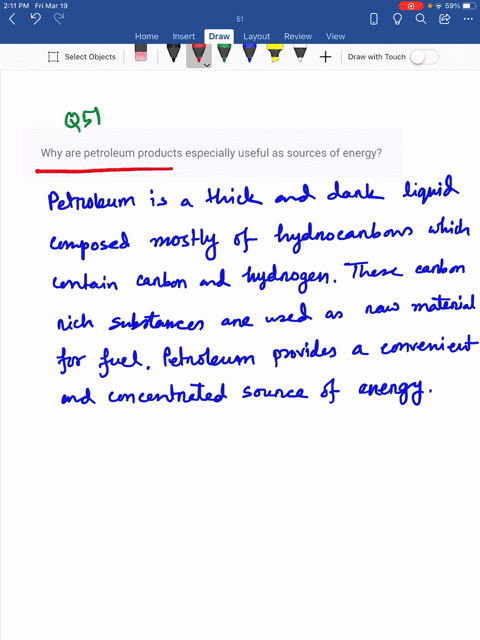 2:11 PM Fri Mar 19
59%
51
Home Insert Draw Layout Review View
Select Objects
Draw with Touch
Q51
Why are petroleum products especially useful as sources of energy?
Petroleum is a thick and dark liquid
composed mostly of hydrocarbons which
contain carbon and hydrogen. These carbon
rich substances are used as raw material
for fuel. Petroleum provides a convenient
and concentrated source of energy.